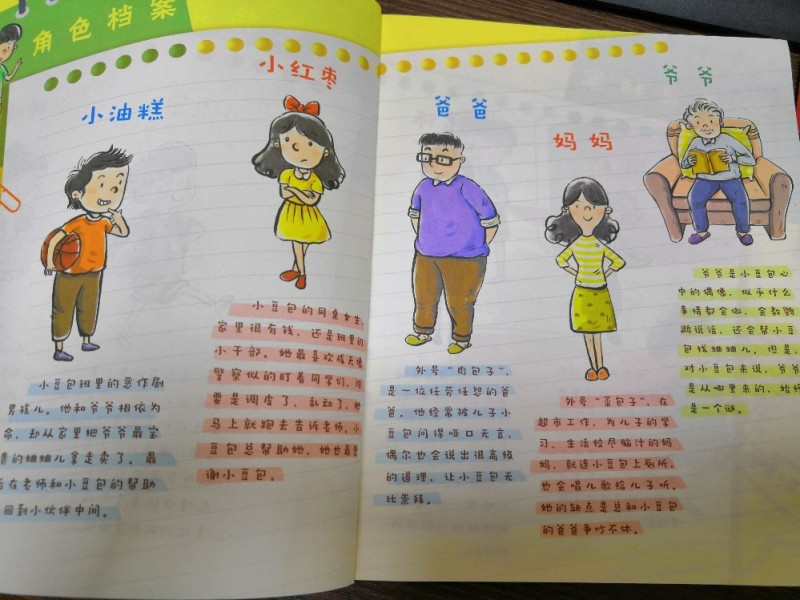 角色档案
小油糕
小豆包班里的恶作剧
男孩儿。他和爷爷相依为
命，却从家里把爷爷最宝
的蛐蛐儿拿走卖了。最
在老师和小豆包的帮助
回到小伙伴中间。
小红枣
小豆包的同桌女生，
家里很有钱，还是班里的
小干部。她最喜欢成天像
警察似的盯着同学们，谁
要是调皮了，乱动了，她
马上就跑去告诉老师。小
豆包总帮助她，她也最感
谢小豆包。
爸爸
外号“肉包子”，
是一位任劳任怨的爸
爸，他经常被儿子小
豆包问得哑口无言，
偶尔也会说出很高级
的道理，让小豆包无
比崇拜。
妈妈
外号“菜包子”，在
超市工作，为儿子的学
习、生活绞尽脑汁的妈
妈，就连小豆包上厕所，
也会唱儿歌给儿子听。
她的缺点是总和小豆包
的爸爸争吵不休。
爷爷
爷爷是小豆包心
中的偶像，似乎什么
事情都会做，会教鹦
鹉说话，还会帮小豆
包找蛐蛐儿。但是，
对小豆包来说，爷爷
是从哪里来的，始终
是一个谜。